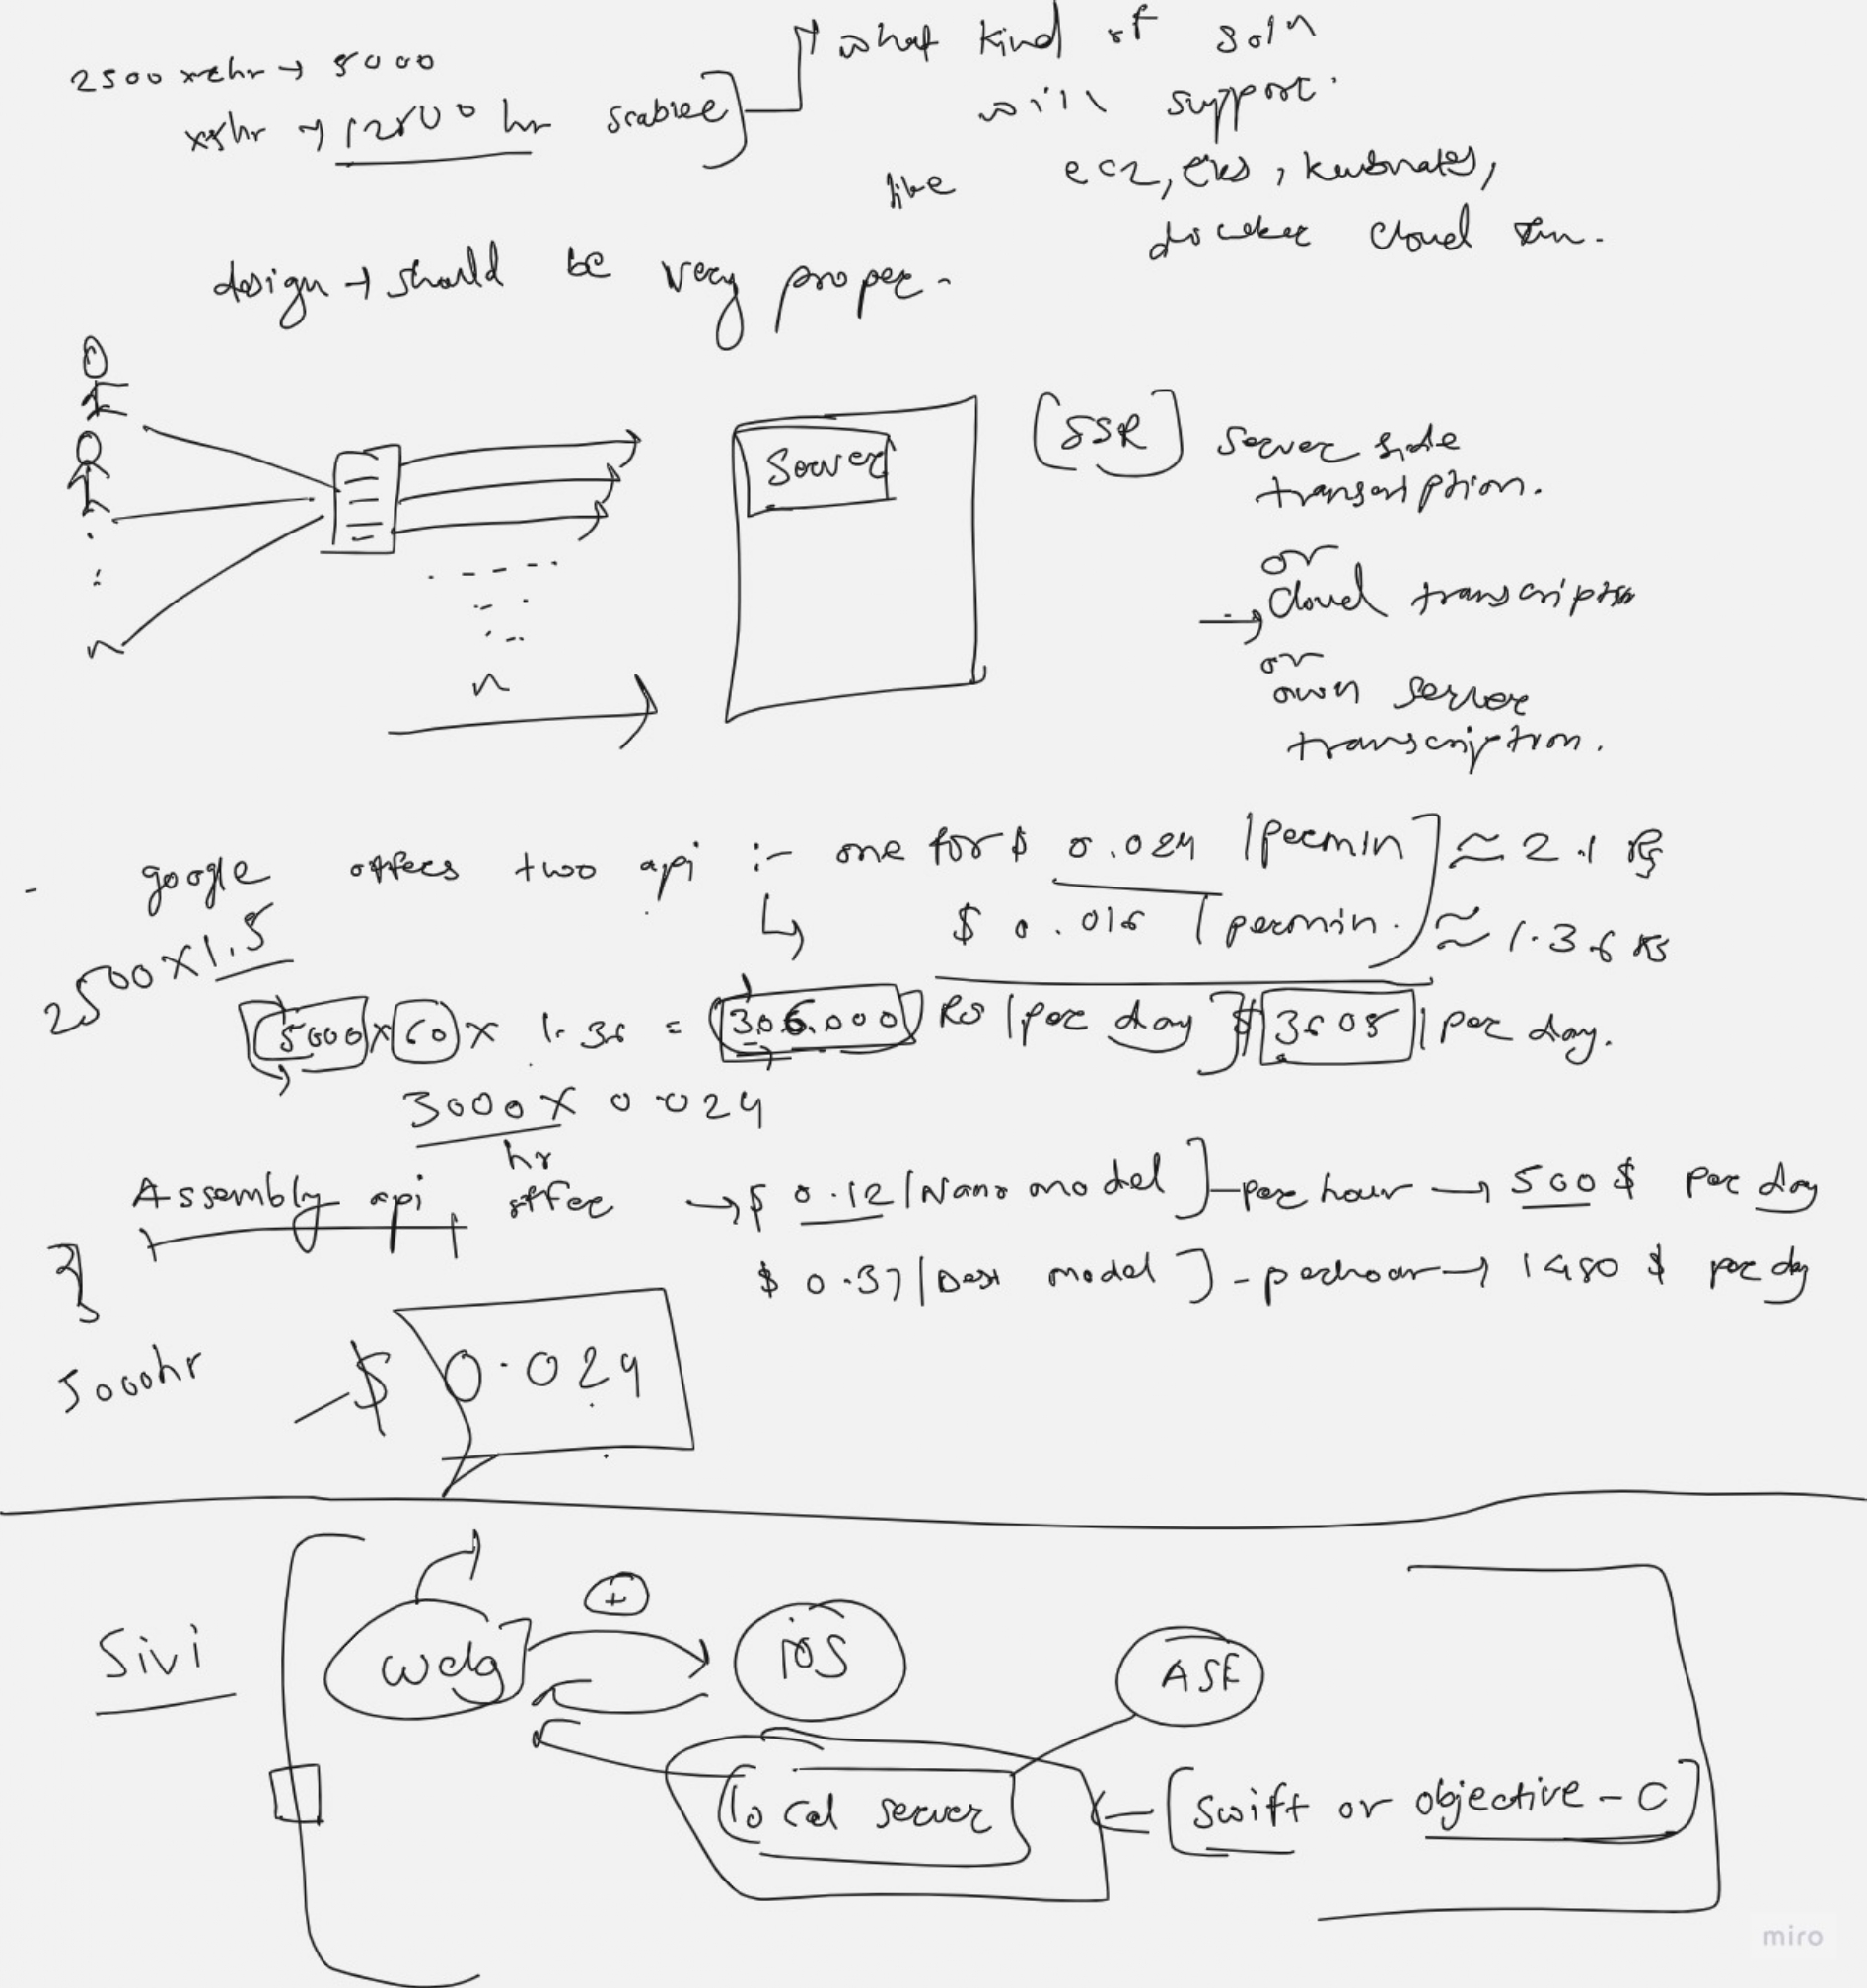 what kind of soln
2500 x 2hr → 5000
will support.
x5hr → 12500 hr scablee
like ec2, eks, kubnates,
docker cloud run.
design → should be very proper.
Server
[SSR] server side
transcription.
or
→ cloud transcription
or
own server
transcription.
n
n
- google offers two api :- one for $ 0.024 / permin ] ≈ 2.1 Rs
↳ $ 0.016 / permin. ≈ 1.36 Rs
2500 x 1.5
5000 x 60 x 1.36 = 306,000 Rs / per day $ 3605 / per day.
3000 x 0.024
hr
Assembly api offer → $ 0.12 / Nano model ] - per hour → 500 $ per day
$ 0.37 / Best model ] - per hour → 1480 $ per day
5000hr
- $ 0.024
+
Sivi
iOS
local server
⇐ [swift or objective - C]
miro